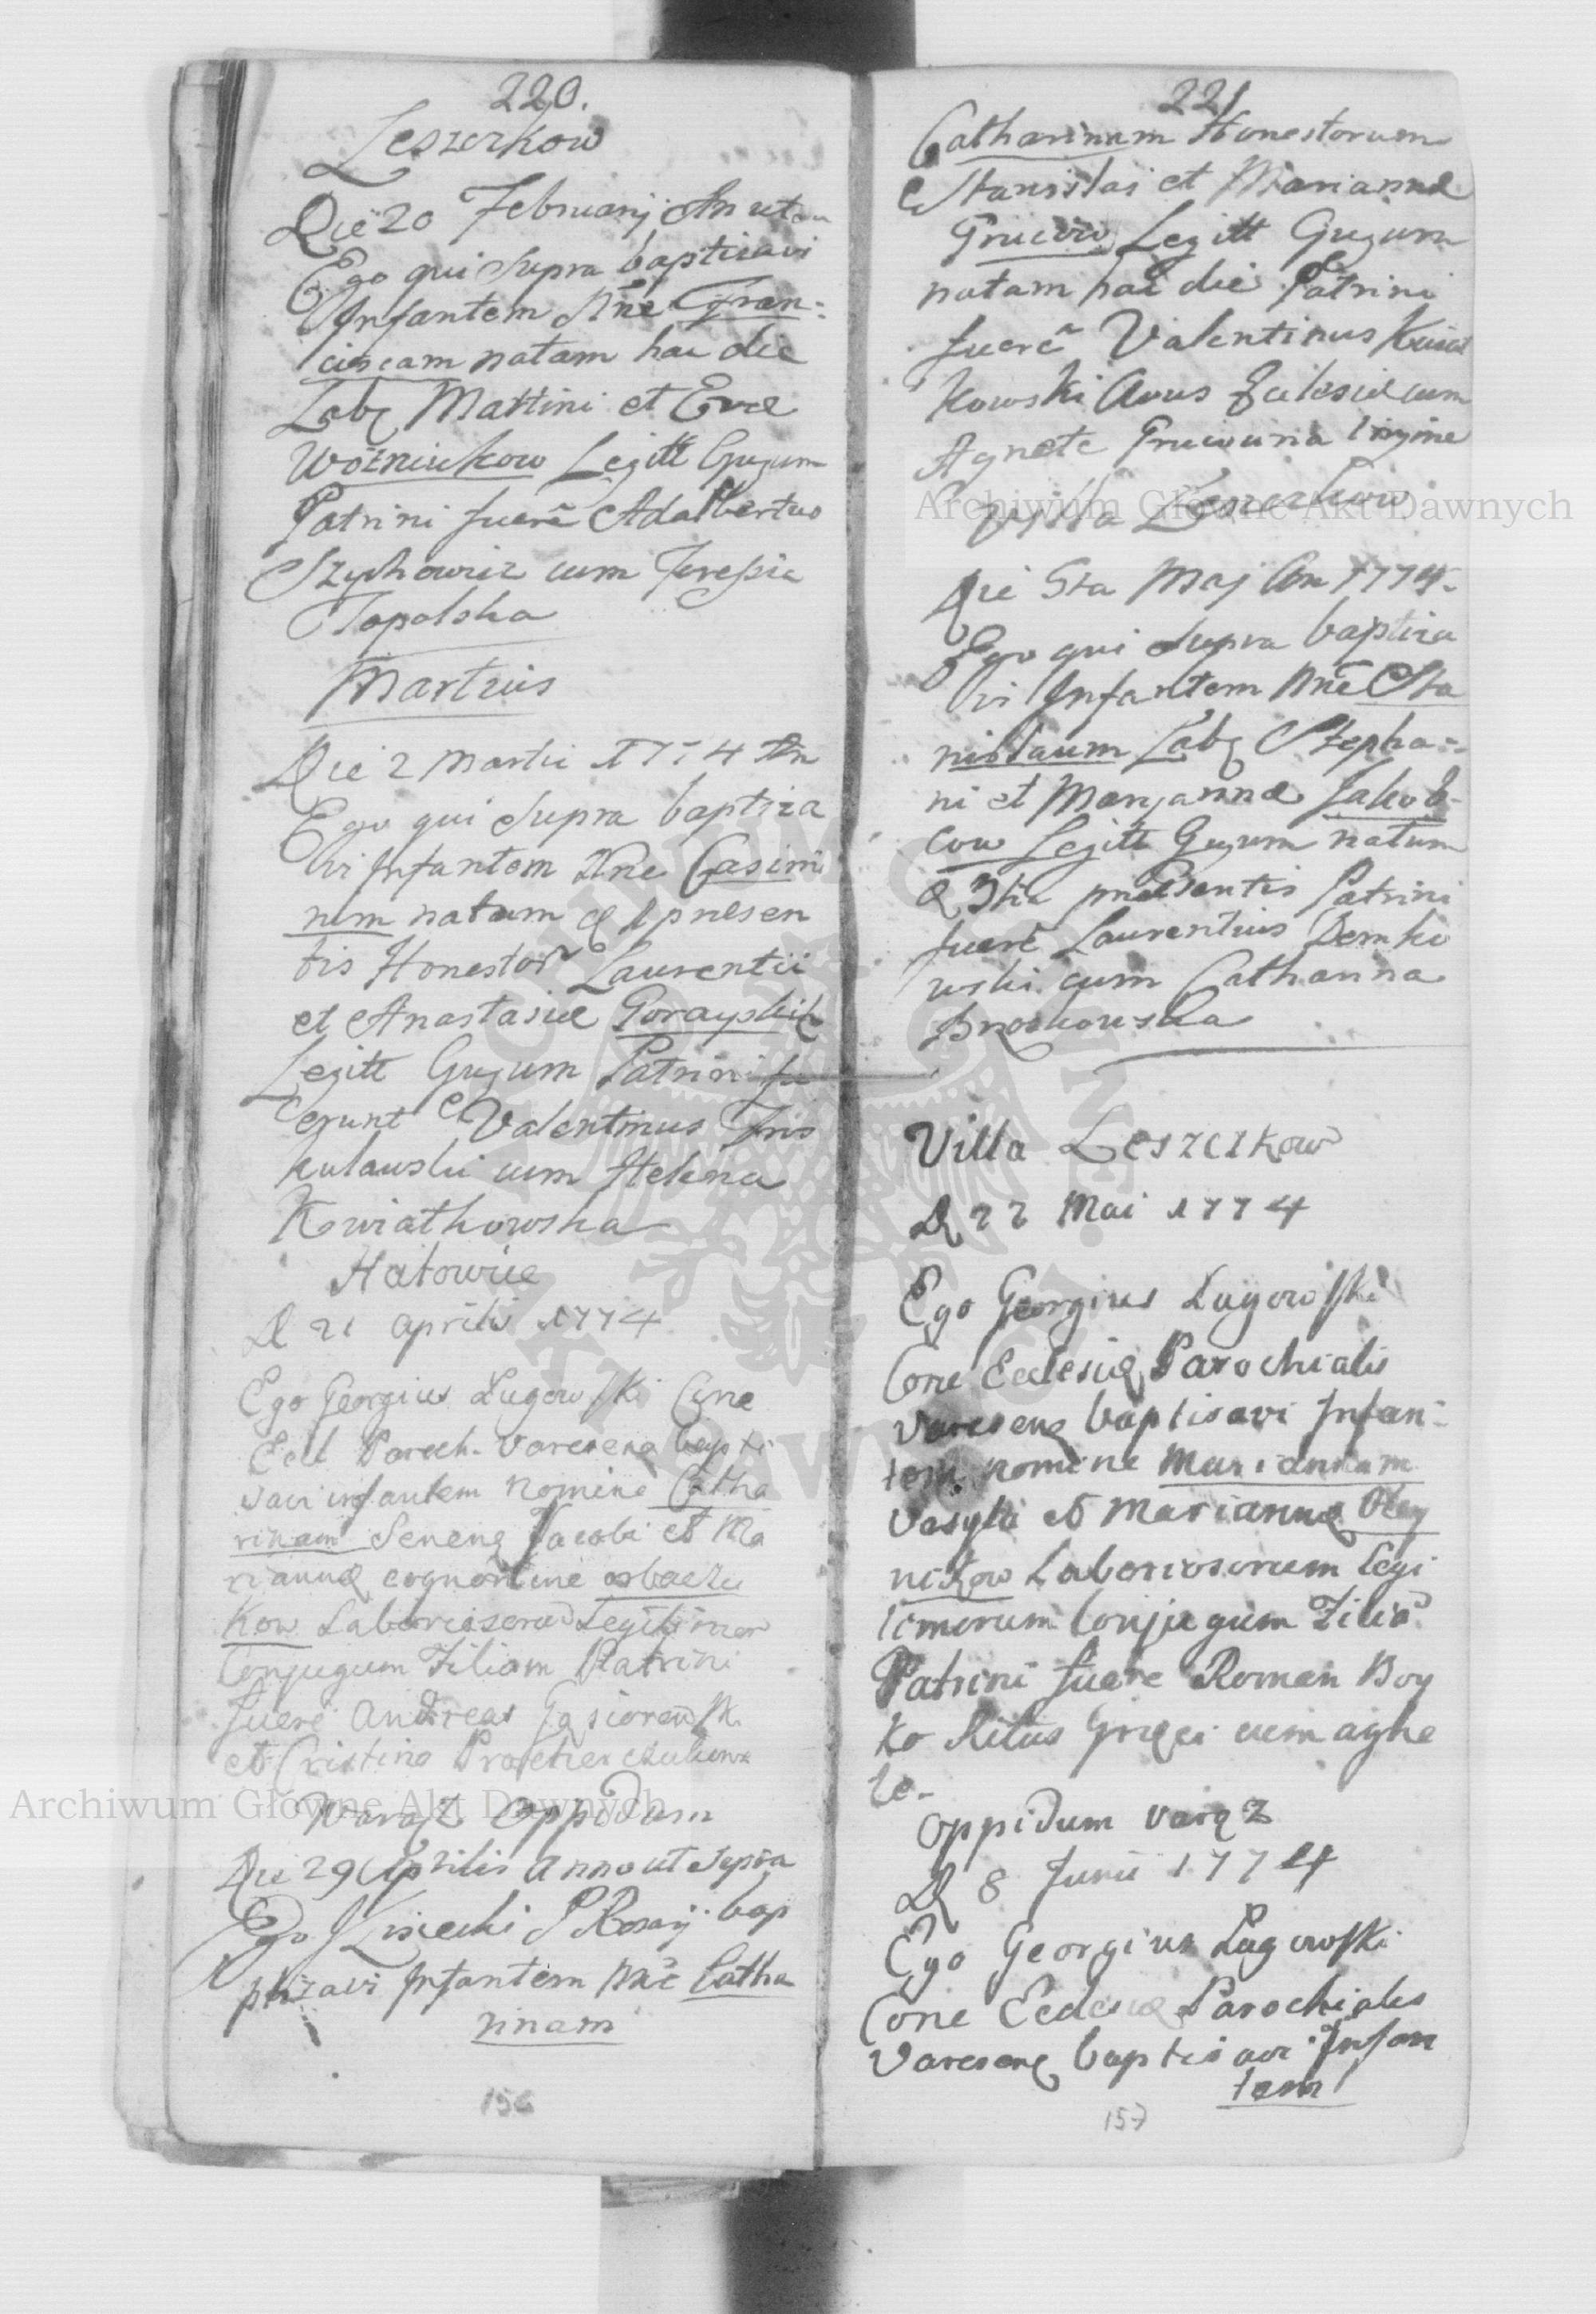 220.
Leszczkow
Die 20 Februarij An ut
Ego qui supra baptizavi
Infantem Nne Fran=
ciscam natam hac die
Lab Martini et Evæ
Wozniukow Legitt Gugum
Patrini fuerē Adalbertus
Szychowicz cum Teressia
Topolska
Martius
Die 2 Martii 1774 An
Ego qui supra baptiza
vi Infantem Nne Casimi
rum natum præsen
tis Honestor Laurentii
et Anastasiæ Gorayskich
Legitt Gugum Patrini fu
erunt Valentinus
cum Helena
Kwiatkowska
Hatowice
D 21 aprilis 1774
Ego Georgius Lugowski Cone
Eccl Paroch. Varesens bapti
savi infantem Nomine Catha
rinam Jacobi et Ma
riannæ cognomine
kow Laboriosoru Legitimor
Conjugum Filiam Patrini
fuere Andreas
et Cristina
Waręz Oppidum
Die 29 Aprilis Anno ut supra
Ego bap
ptizavi Infantem Nne Catha
rinam
156
221
Catharinam Honestorum
Stanislai et Mariannæ
Legitt Gugum
natam hac die Patrini
fuerē Valentinus
kowski Ecclesiæ cum
Agnete
Villa Leszczkow
Die 5ta Maj An 1774
Ego qui supra baptiza
vi Infantem Nne Sta
nislaum Lab Stepha=
ni et Maryannæ Jakob
cow Legitt Gugum natum
3tia præsentis Patrini
fuerē Laurentius Demko
wski cum Catharina
Brzozkowska
Villa Leszczkow
D 22 Mai 1774
Ego Georgius Lugowski
Cone Ecclesiæ Parochialis
Varesens baptisavi Infan=
tem nomine Mariannam
Vasyla et Mariannæ Oley
nikow Laboriosorum legi
timorum Conjugum Filia
Patrini fuere Roman Boy
ko Ritus Græci cum Agne
te.
Oppidum Varęz
D 8 Junii 1774
Ego Georgius Lugowski
Cone Ecclesiæ Parochialis
Varesens baptisavi Infan
tem
157
Archiwum Główne Akt Dawnych
Archiwum Główne Akt Dawnych